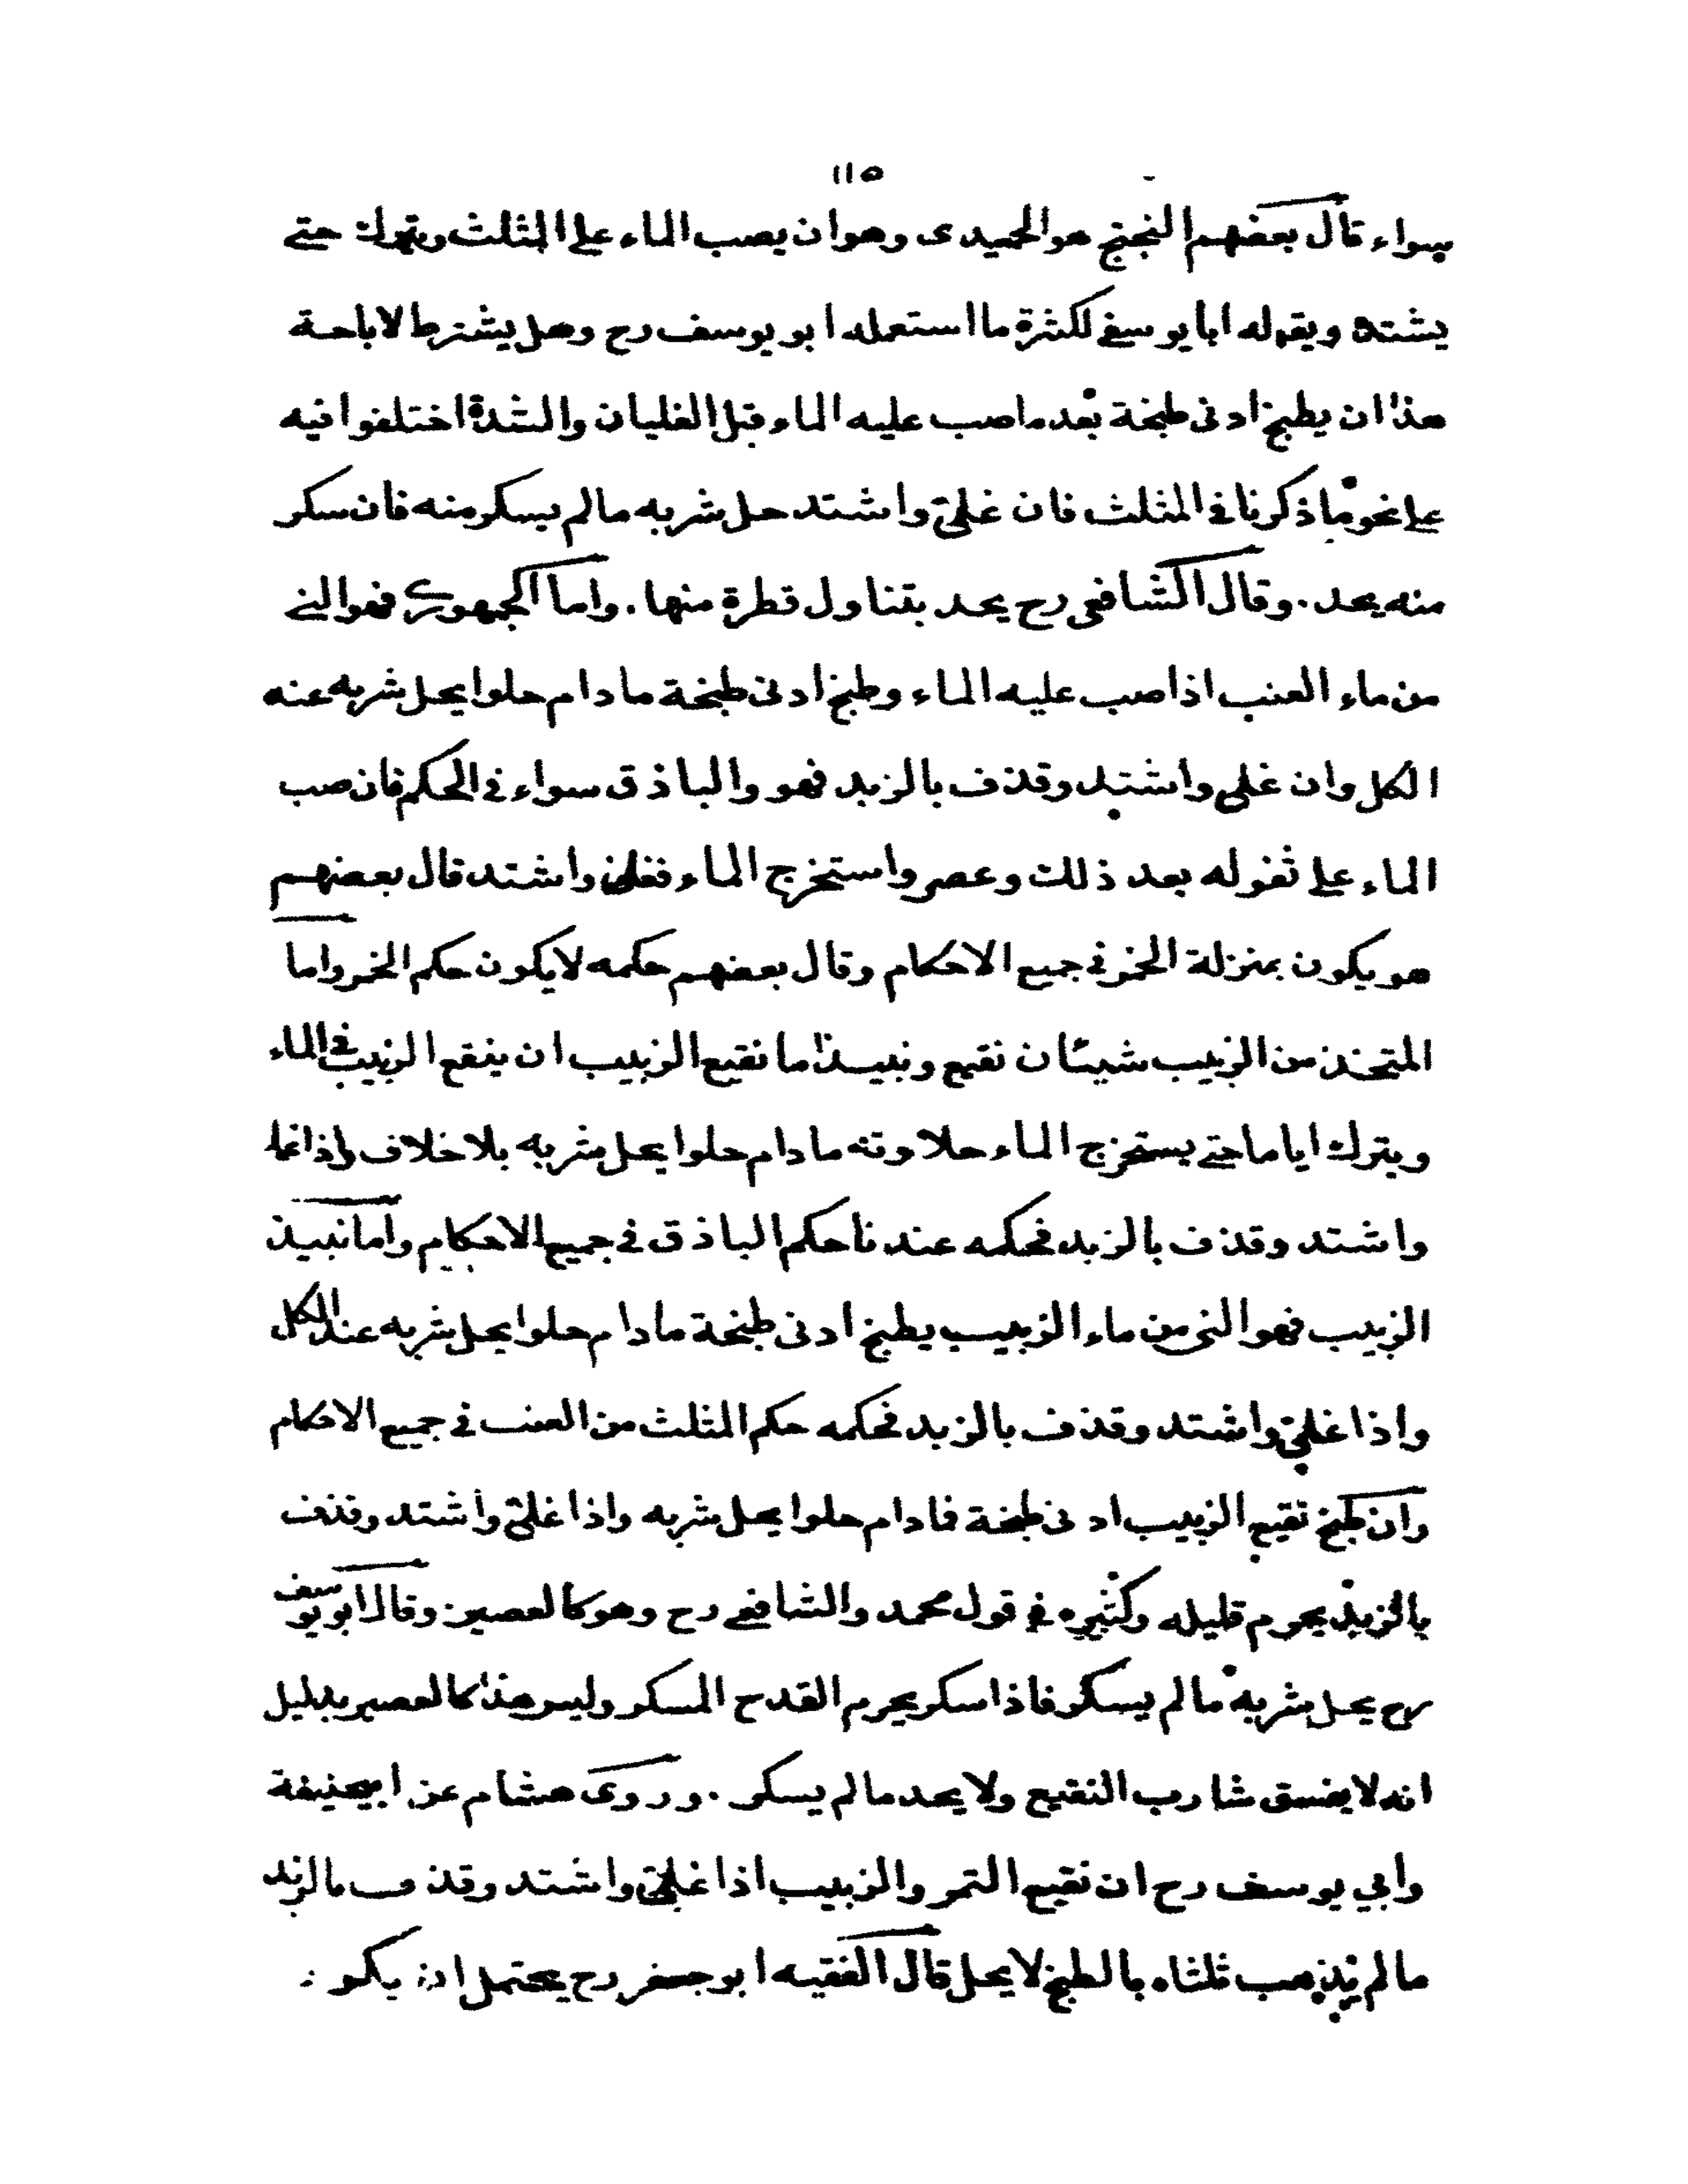 ١١٥
سواء قال بعضهم النجتج هو الحميدى وهو ان يصب الماء على المثلث ويترك حتى
يشتد ويقوله ابا يوسفى لكثرة ما استعمله ابو يوسف رح وهل يشترط لاباحة
هذا ان يطبخ ادنى طبخة بعد ما صب عليه الماء قبل الغليان والشدة اختلفوا فيه
على نحو ما ذكرنا فى المثلث فان غلى واشتد حل شربه ما لم يسكر منه فان سكر
منه يحد . وقال الشافعى رح يحد بتناول قطرة منها . واما الجمهورى فهو النى
من ماء العنب اذا صب عليه الماء وطبخ ادنى طبخة ما دام حلوا يحل شربه عند
الكل وان غلى واشتد وقذف بالزبد فهو والباذق سواء فى الحكم فان صب
الماء على ثفوله بعد ذلك وعصر واستخرج الماء فغلى واشتد قال بعضهم
هو يكون بمنزلة الخمر فى جميع الاحكام وقال بعضهم حكمه لا يكون حكم الخمر واما
المتخذ من الزبيب شيئان نقيع ونبيذ اما نقيع الزبيب ان ينقع الزبيب فى الماء
ويترك اياما حتى يستخرج الماء حلاوته ما دام حلوا يحل شربه بلا خلاف واذا غلا
واشتد وقذف بالزبد فحكمه عندنا حكم الباذق فى جميع الاحكام واما نبيذ
الزبيب فهو النى من ماء الزبيب يطبخ ادنى طبخة ما دام حلوا يحل شربه عند الكل
واذا غلى واشتد وقذف بالزبد فحكمه حكم المثلث من العنب فى جميع الاحكام
وان طبخ نقيع الزبيب ادنى طبخة فما دام حلوا يحل شربه واذا غلى واشتد وقذف
بالزبد يحرم قليله وكثيره فى قول محمد والشافعى رح وهو كالعصير وقال ابو يوسف
رح يحل شربه ما لم يسكر فاذا سكر يحرم القدح المسكر وليس هذا كالعصير بدليل
انه لا يفسق شارب النقيع ولا يحد ما لم يسكر . وروى هشام عن ابيحنيفة
وابي يوسف رح ان نقيع التمر والزبيب اذا غلى واشتد وقذف بالزبد
ما لم يذهب ثلثاه بالطبخ لا يحل قال الفقيه ابو جعفر رح يحتمل ان يكون